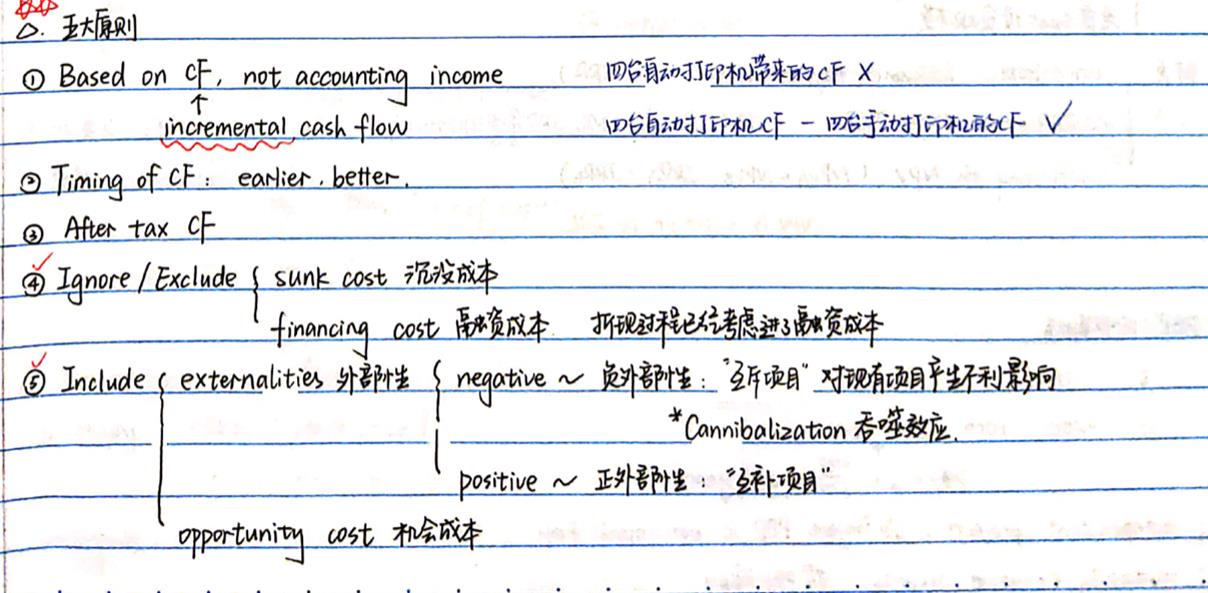 △. 五大原则
① Based on CF, not accounting income 四台自动打印机带来的CF X
↑
incremental cash flow 四台自动打印机CF - 四台手动打印机的CF ✓
② Timing of CF: earlier, better.
③ After tax CF
④ Ignore / Exclude { sunk cost 沉没成本
financing cost 融资成本 折现过程已经考虑进了融资成本
⑤ Include { externalities 外部性 { negative ~ 负外部性: "互斥项目" 对现有项目产生不利影响
*Cannibalization 吞噬效应.
positive ~ 正外部性: "互补项目"
opportunity cost 机会成本